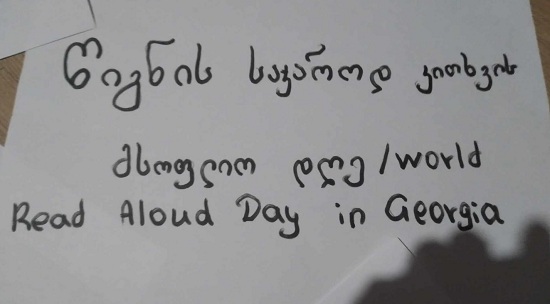 წიგნის საჯაროდ კითხვის
მსოფლიო დღე/world
Read Aloud Day in Georgia